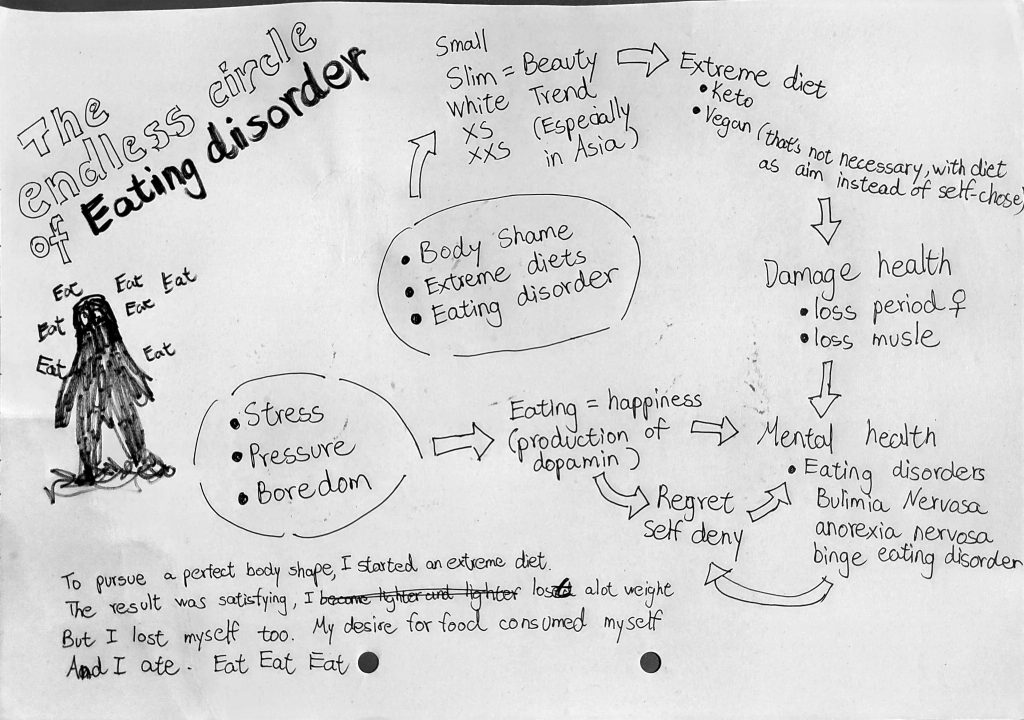 The
endless circle
of Eating disorder
Eat
Eat
Eat
Eat
Eat
Eat
Eat
Small
Slim = Beauty
White Trend
XS (Especially
XXS in Asia)
Extreme diet
• Keto
• Vegan (that's not necessary, with diet
as aim instead of self-chose)
• Body Shame
• Extreme diets
• Eating disorder
Damage health
• loss period ♀
• loss musle
• Stress
• Pressure
• Boredom
Eating = happiness
(production of
dopamin)
Regret
Self deny
Mental health
• Eating disorders
Bulimia Nervosa
anorexia nervosa
binge eating disorder
To pursue a perfect body shape, I started an extreme diet.
The result was satisfying, I became lighter and lighter lost alot weight
But I lost myself too. My desire for food consumed myself
And I ate. Eat Eat Eat